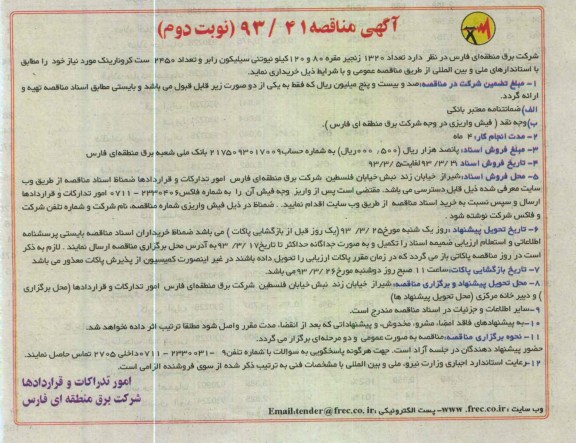 آگهی مناقصه ۴۱ / ۹۳ (نوبت دوم)
شرکت برق منطقه‌ای فارس در نظر دارد تعداد ۱۳۲۰ زنجیر مقره ۸۰ و ۱۲۰ کیلو نیوتنی سیلیکون رابر و تعداد ۲۴۵۰ ست کرونارینگ مورد نیاز خود را مطابق
با استاندارهای ملی و بین المللی از طریق مناقصه عمومی و با شرایط ذیل خریداری نماید.
۱- مبلغ تضمین شرکت در مناقصه:صد و بیست و پنج میلیون ریال که فقط به یکی از دو صورت زیر قابل قبول می باشد و بایستی مطابق اسناد مناقصه تهیه و
ارائه گردد.
الف)ضمانتنامه معتبر بانکی
ب)وجه نقد ( فیش واریزی در وجه شرکت برق منطقه ای فارس ).
۲- مدت انجام کار: ۴ ماه
۳- مبلغ فروش اسناد: پانصد هزار ریال (۵۰۰,۰۰۰ریال) به شماره حساب۲۱۷۵۰۹۳۰۱۷۰۰۹ بانک ملی شعبه برق منطقه‌ای فارس
۴- تاریخ فروش اسناد :۹۳/۳/۳ لغایت۹۳/۳/۵
۵- محل فروش اسناد:شیراز خیابان زند نبش خیابان فلسطین شرکت برق منطقه‌ای فارس امور تدارکات و قراردادها ضمناً اسناد مناقصه از طریق وب
سایت معرفی شده ذیل قابل دسترسی می باشد. مقتضی است پس از واریز وجه فیش آن را به شماره فاکس۲۳۳۰۴۰۶ -۰۷۱۱ امور تدارکات و قراردادها
ارسال و سپس نسبت به خرید اسناد مناقصه از طریق وب سایت اقدام نمایید . ضمناً در ذیل فیش واریزی شماره مناقصه، نام شرکت و شماره تلفن شرکت
و فاکس شرکت نوشته شود .
۶- تاریخ تحویل پیشنهاد :روز یک شنبه مورخ۹۳/۳/۲۵ (یک روز قبل از بازگشایی پاکات ) می باشد ضمناً خریداران اسناد مناقصه بایستی پرسشنامه
اطلاعاتی و استعلام ارزیابی ضمیمه اسناد را تکمیل و به صورت جداگانه حداکثر تا تاریخ۹۳/۳/۱۷ به آدرس محل برگزاری مناقصه ارسال نمایند . لازم به ذکر
است در روز مناقصه پاکاتی باز می گردد که در زمان مقرر پاکات ارزیابی را تحویل داده باشند در غیر اینصورت کمیسیون از پذیرش پاکات معذور می باشد
۷- تاریخ بازگشایی پاکات:ساعت ۱۱ صبح روز دوشنبه مورخ۹۳/۳/۲۶می باشد.
۸- محل تحویل پیشنهاد و برگزاری مناقصه: شیراز خیابان زند نبش خیابان فلسطین شرکت برق منطقه‌ای فارس امور تدارکات و قراردادها (محل برگزاری
) و دبیر خانه مرکزی (محل تحویل پیشنهاد ها)
۹-سایر اطلاعات و جزئیات در اسناد مناقصه مندرج است.
۱۰-به پیشنهادهای فاقد امضا، مشرو، مخدوش، و پیشنهاداتی که بعد از انقضاء مدت مقرر واصل شود مطلقا ترتیب اثر داده نخواهد شد.
۱۱- نحوه برگزاری مناقصه:مناقصه به صورت عمومی و دو مرحله‌ای برگزار می گردد.
حضور پیشنهاد دهندگان در جلسه آزاد است. جهت هرگونه پاسخگویی به سوالات با شماره تلفن۹ -۲۳۳۰۰۳۱-۰۷۱۱داخلی ۲۷۰۵ تماس حاصل نمایند.
۱۲-رعایت استاندارد اجباری وزارت نیرو، ملی و بین المللی با مشخصات فنی به ترتیب ذکر شده از سوی فروشنده الزامی است.
امور تدراکات و قراردادها
شرکت برق منطقه ای فارس
وب سایت ،www .frec.co.ir- پست الکترونیکی ،Email،tender@frec.co.ir